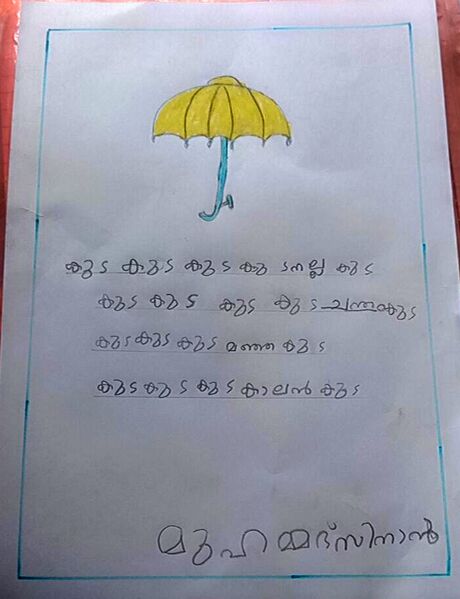 കുട കുട കുട കുട നല്ല കുട
കുട കുട കുട കുട ചന്തകുട
കുട കുട കുട മഞ്ഞ കുട
കുട കുട കുട കാലൻ കുട
മുഹമ്മദ്സിനാൻ